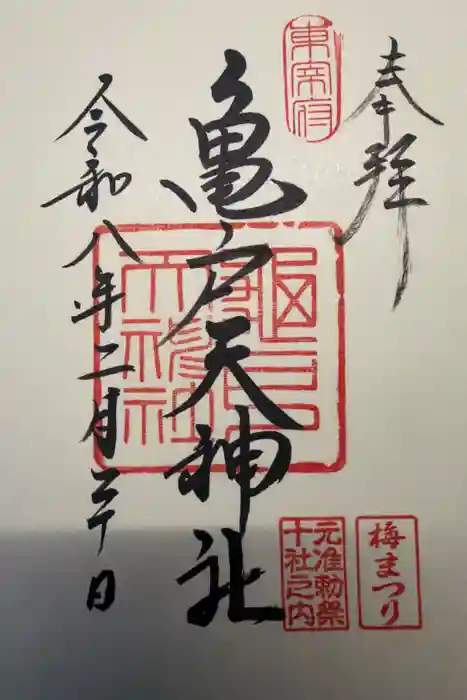 奉拝
東宰府
亀戸天神社
令和八年二月二十日
梅まつり
元准勅祭
十社之内